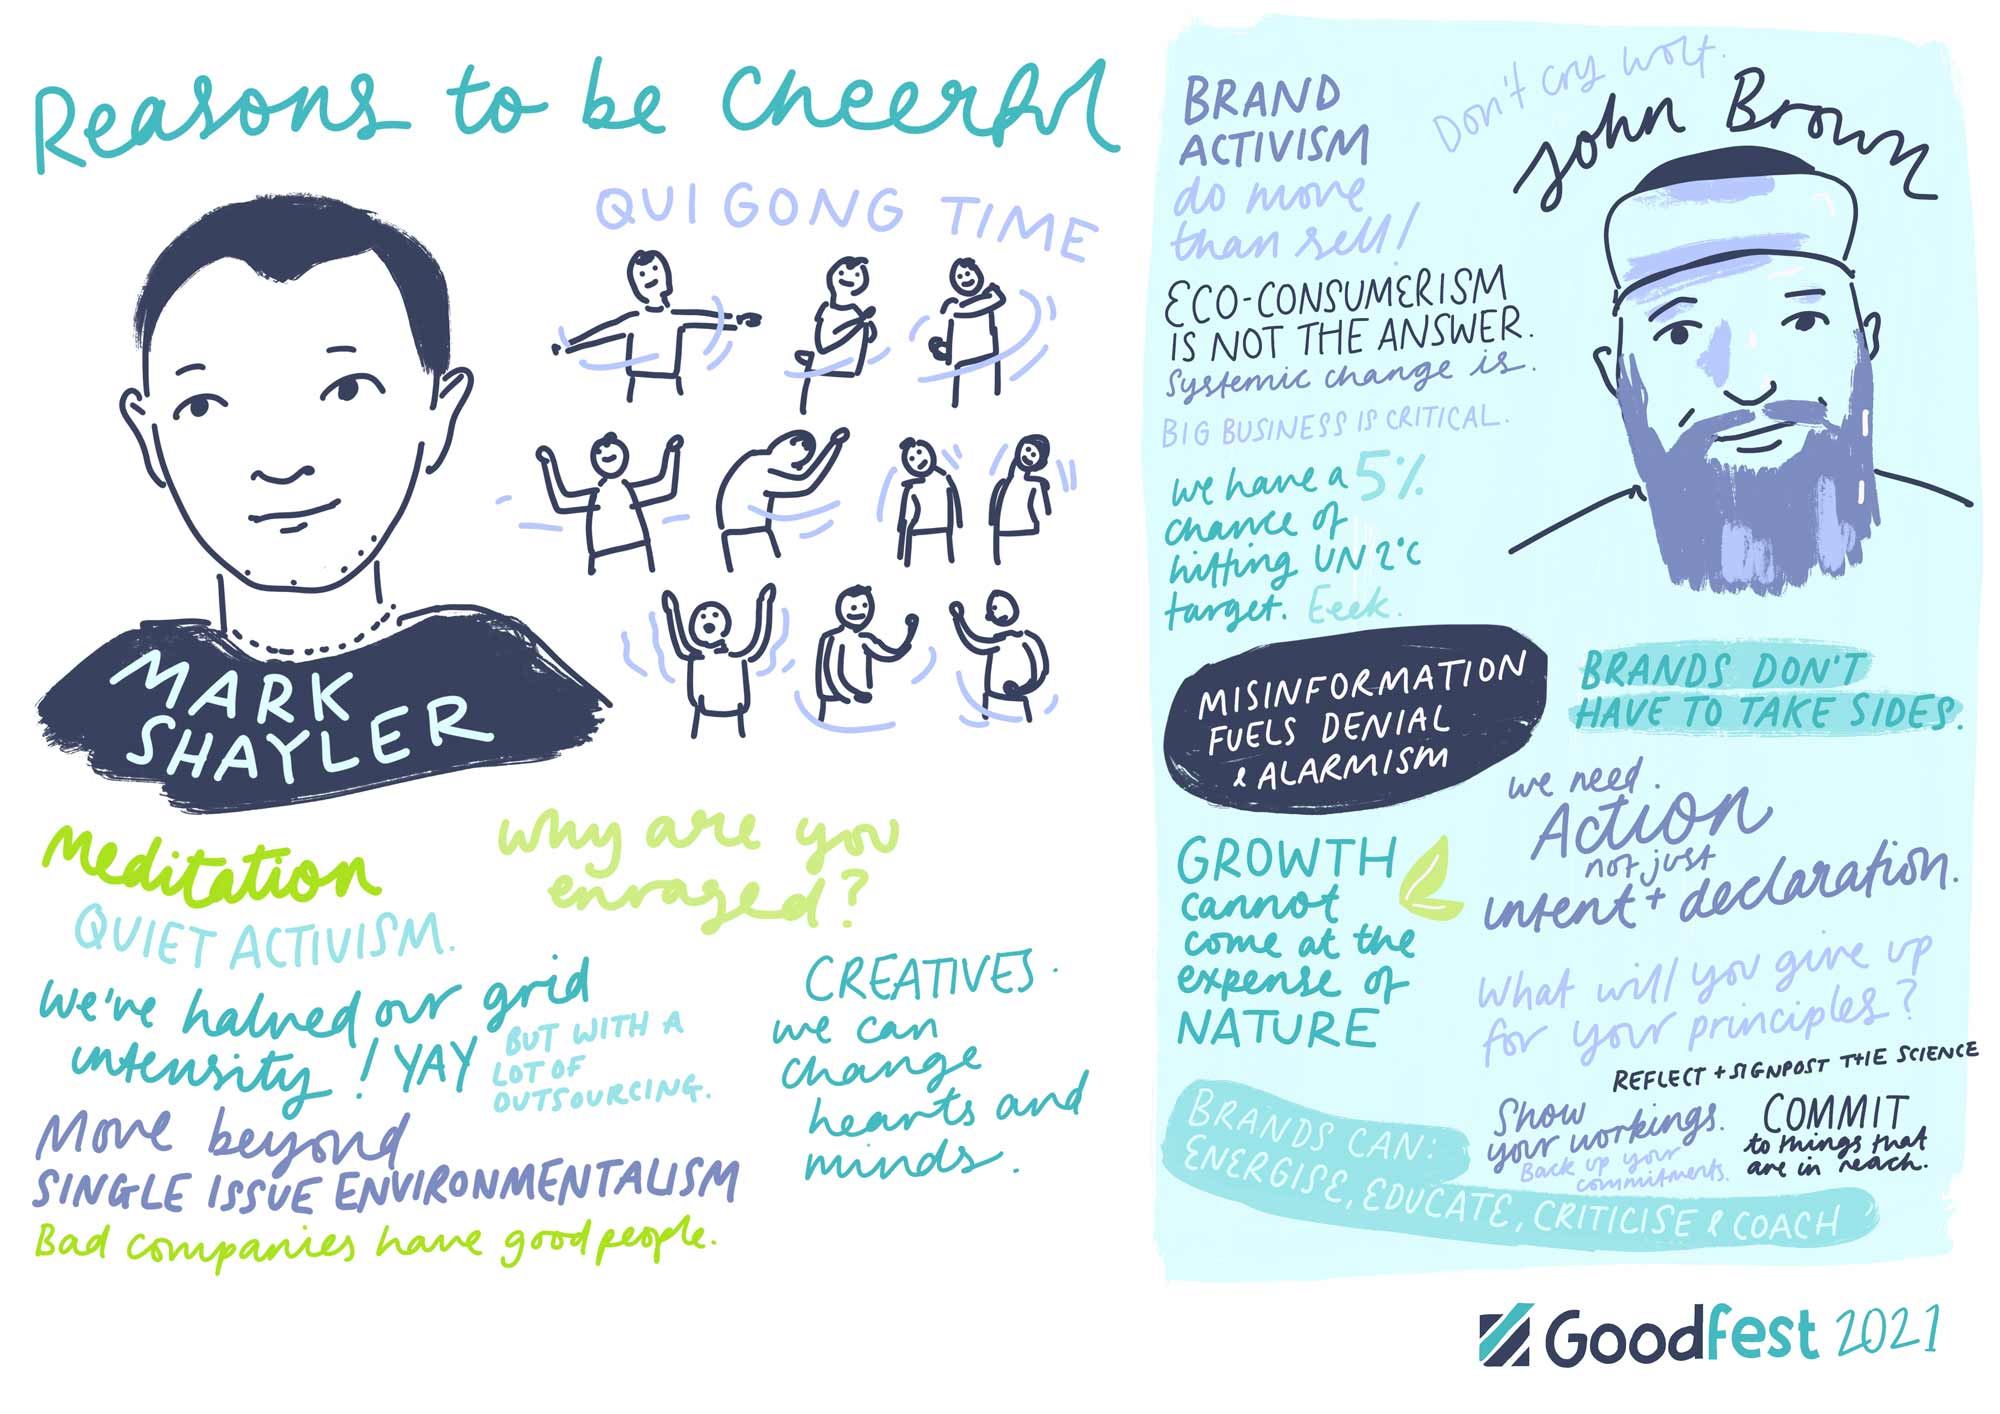 Reasons to be Cheerful
QUI GONG TIME
MARK
SHAYLER
Meditation
QUIET ACTIVISM.
We've halved our grid
intensity! YAY
BUT WITH A
LOT OF
OUTSOURCING.
Move beyond
SINGLE ISSUE ENVIRONMENTALISM
Bad companies have good people.
Why are you
enraged?
CREATIVES.
we can
change
hearts and
minds.
BRAND
ACTIVISM
do move
than sell!
Don't cry wolf.
John Brown
ECO-CONSUMERISM
IS NOT THE ANSWER.
Systemic change is.
BIG BUSINESS IS CRITICAL.
We have a 5%
chance of
hitting UN 2°C
target. Eeek.
MISINFORMATION
FUELS DENIAL
& ALARMISM
BRANDS DON'T
HAVE TO TAKE SIDES.
We need.
Action
not just
intent + declaration.
GROWTH
cannot
come at the
expense of
NATURE
What will you give up
for your principles?
REFLECT + SIGNPOST THE SCIENCE
Show
your workings.
Back up your
commitments.
COMMIT
to things that
are in reach.
BRANDS CAN:
ENERGISE, EDUCATE, CRITICISE & COACH
Goodfest 2021